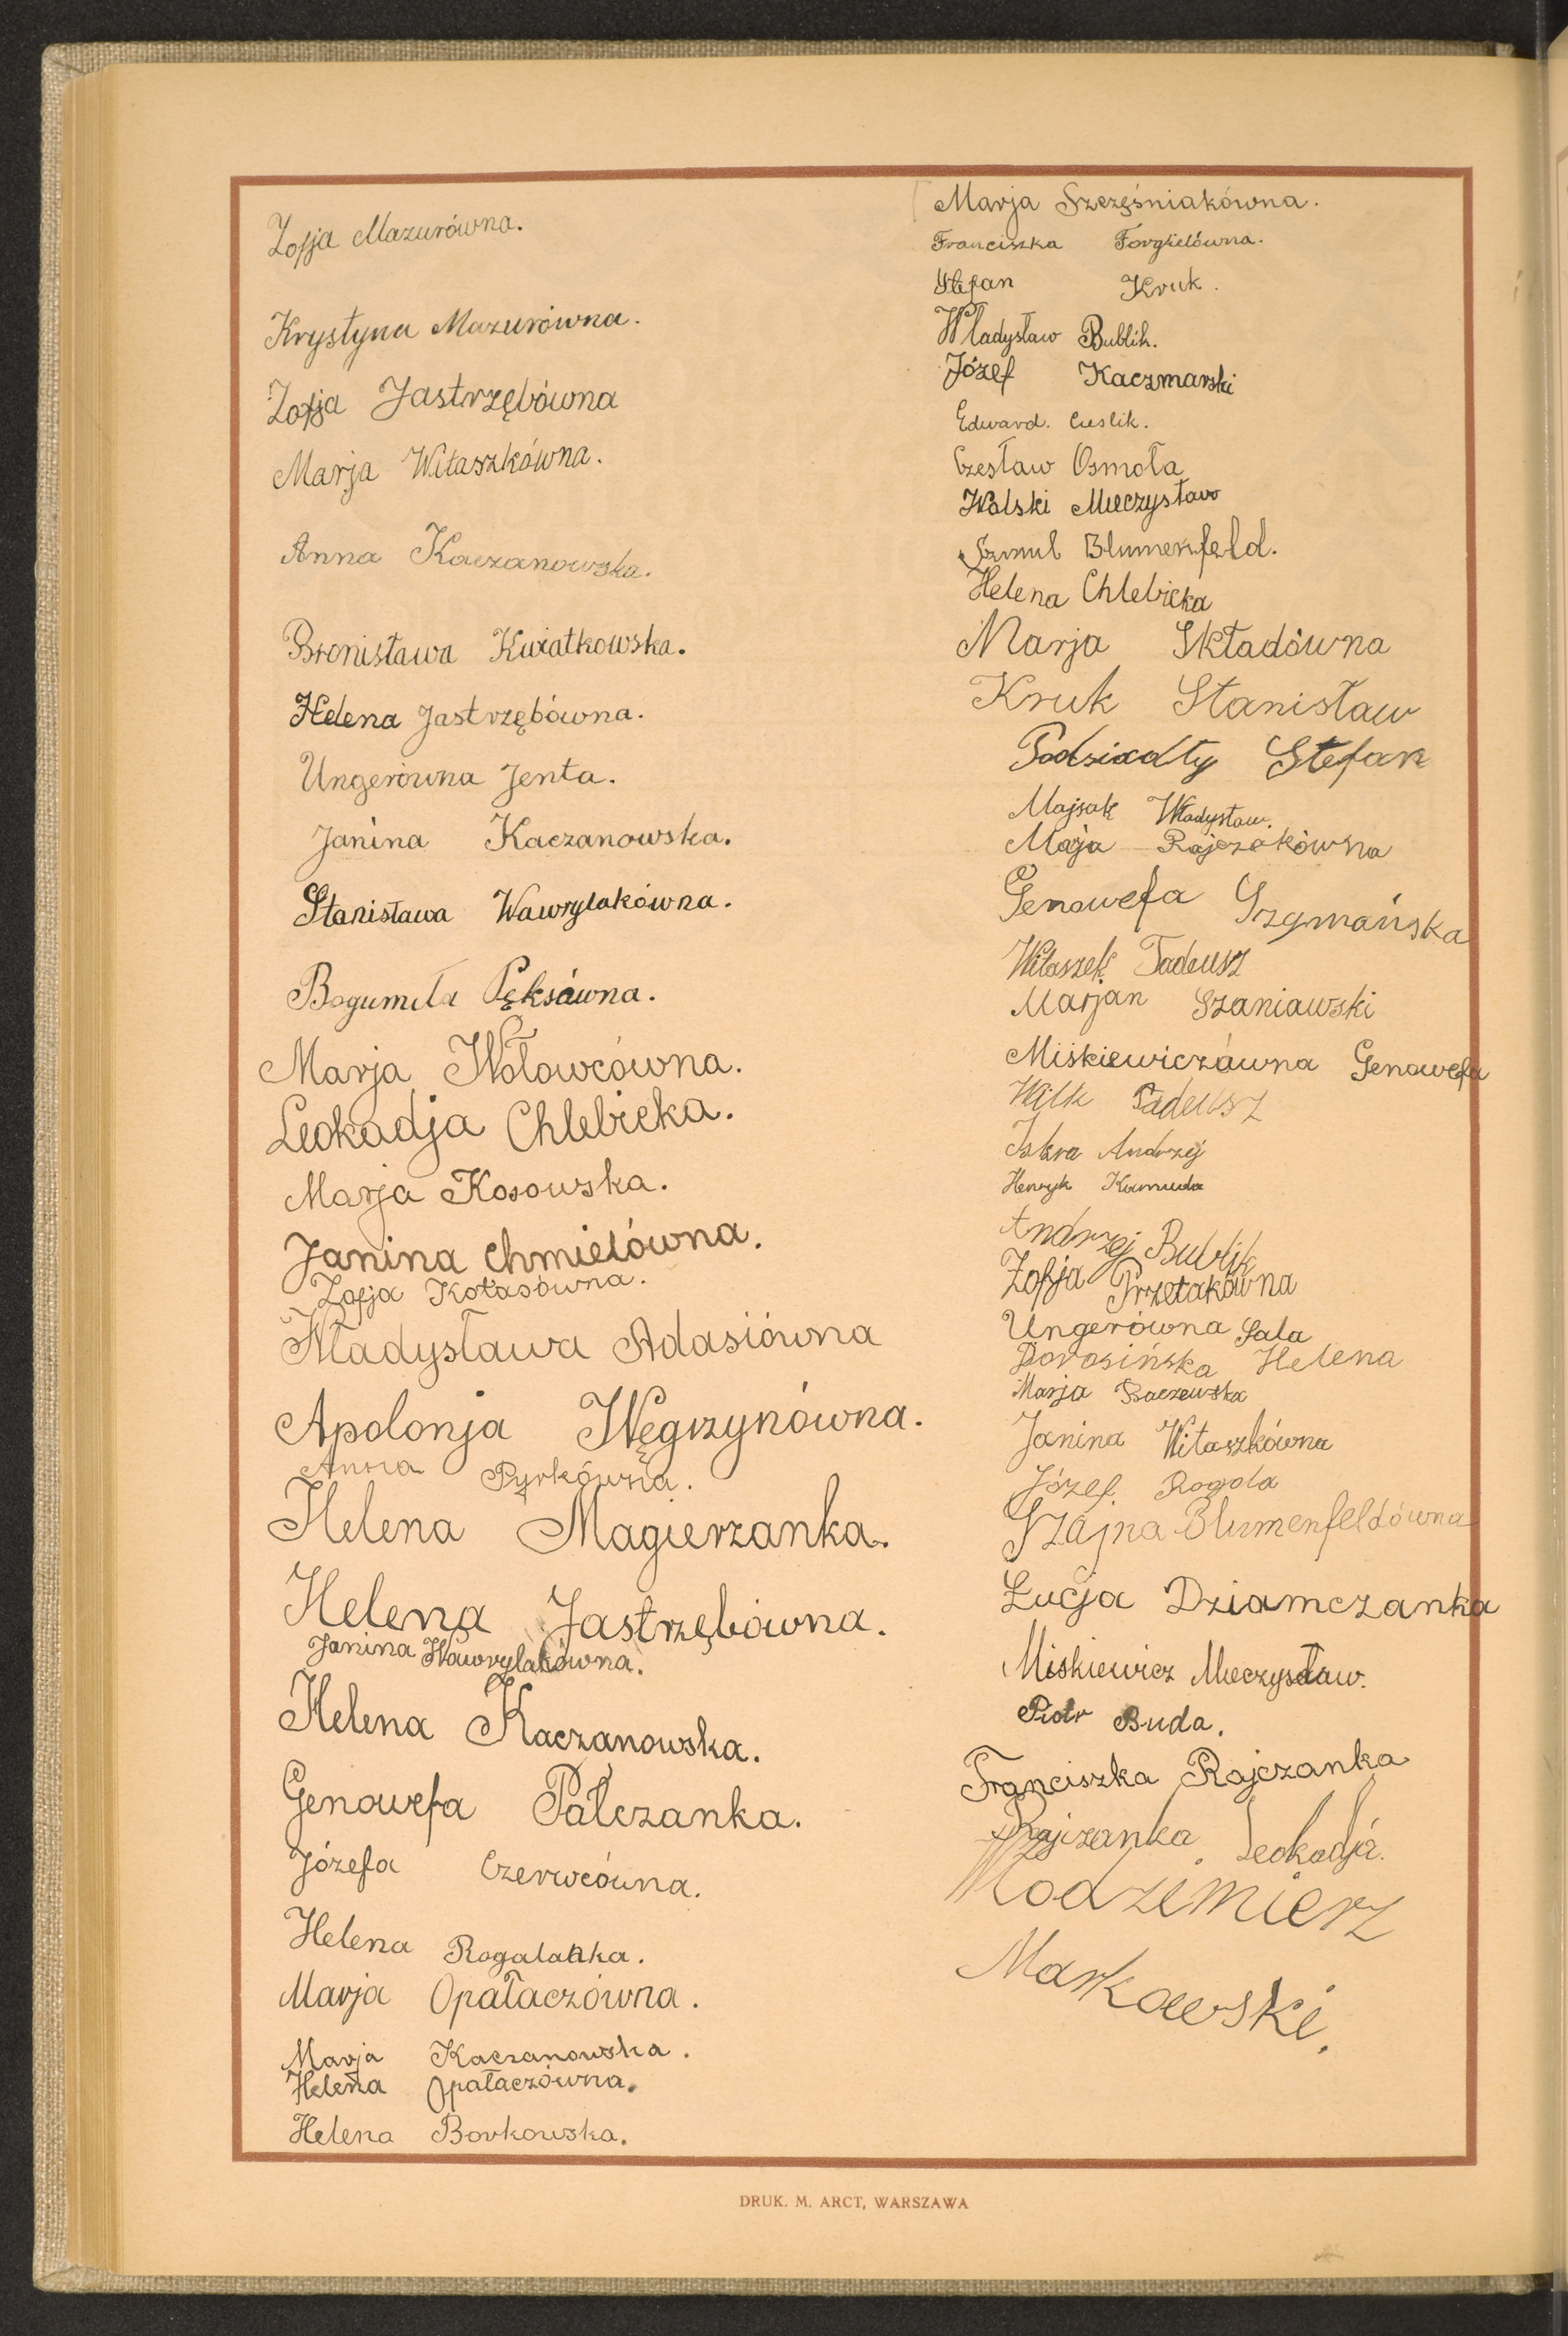 Zofja Mazurówna.
Krystyna Mazurówna.
Zofja Jastrzębówna
Marja Witaszkówna.
Anna Kaczanowska.
Bronisława Kwiatkowska.
Helena Jastrzębówna.
Ungerówna Jenta.
Janina Kaczanowska.
Stanisława Wawrylakówna.
Bogumiła Pęksówna.
Marja Wołowcówna.
Leokadja Chlebicka.
Marja Kosowska.
Janina Chmielówna.
Zofja Kotasówna.
Władysława Adasiówna
Apolonja Węgrzynówna.
Anna Pyrkówna.
Helena Magierzanka.
Helena Jastrzębówna.
Janina Wawrylakówna.
Helena Kaczanowska.
Genowefa Palczanka.
Józefa Czerwcówna.
Helena Rogalanka.
Marja Opałaczówna.
Marja Kaczanowska.
Helena Opałaczówna.
Helena Borkowska.
Marja Szczęśniakówna.
Franciszka Forgielówna.
Stefan Kruk.
Władysław Bublik.
Józef Kaczmarski
Edward. Cuslik.
Czesław Osmoła
Wolski Mieczysław
Szmul Blumenfeld.
Helena Chlebicka
Marja Składówna
Kruk Stanisław
Podsiadły Stefan
Majsak Władysław.
Maja Rajczakówna
Genowefa Szymańska
Witaszek Tadeusz
Marjan Szaniawski
Miśkiewiczówna Genowefa
Wilk Tadeusz
Iskra Andrzej
Henryk Kamuda
Andrzej Bublik
Zofja Przetakówna
Ungerówna Sala
Dorosińska Helena
Marja Baczewska
Janina Witaszkówna
Józef Rogola
Szajna Blumenfeldówna
Łucja Dziamczanka
Miskiewicz Mieczysław.
Piotr Buda.
Franciszka Rajczanka
Rajczanka Leokadja.
Włodzimierz
Markowski.
DRUK. M. ARCT, WARSZAWA